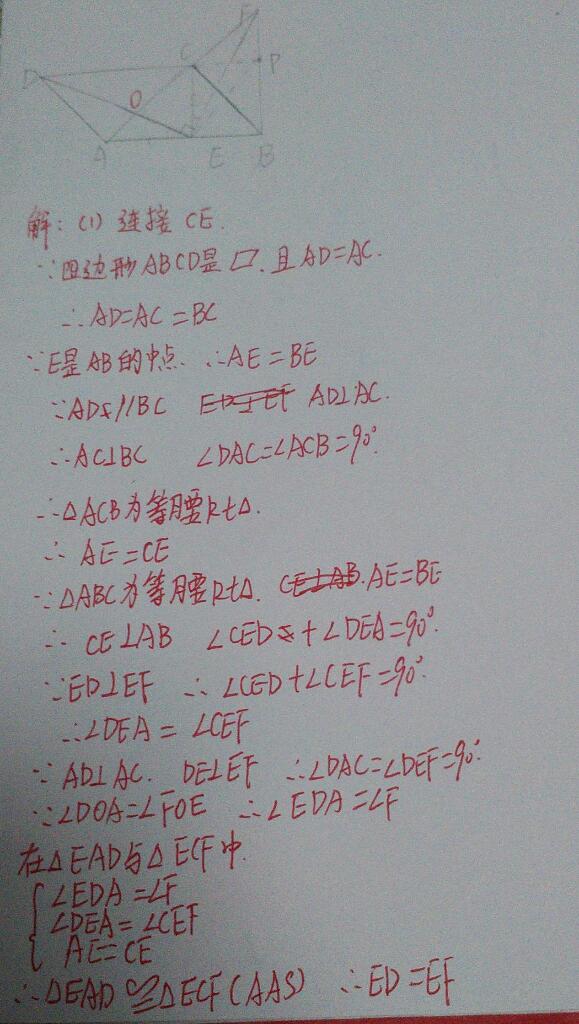 F
D
C
P
O
A
E
B
解：(1) 连接 CE.
∵四边形 ABCD是▱. 且 AD=AC.
∴AD=AC=BC
∵E是AB的中点. ∴AE=BE
∵AD∥BC ED⊥EF AD⊥AC.
∴AC⊥BC ∠DAC=∠ACB=90°.
∴△ACB为等腰Rt△.
∴ AE=CE
∵△ABC为等腰Rt△. CE⊥AB. AE=BE
∴ CE⊥AB ∠CED+∠DEA=90°.
∵ED⊥EF ∴∠CED+∠CEF=90°.
∴∠DEA=∠CEF
∵ AD⊥AC. DE⊥EF ∴∠DAC=∠DEF=90°.
∵∠DOA=∠FOE ∴∠EDA=∠F
在△EAD与△ECF中.
∠EDA=∠F
∠DEA=∠CEF
AE=CE
∴△EAD≌△ECF(AAS) ∴ED=EF